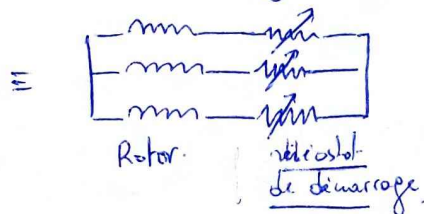 ≡
Rotor.
rhéostat
de démarrage.